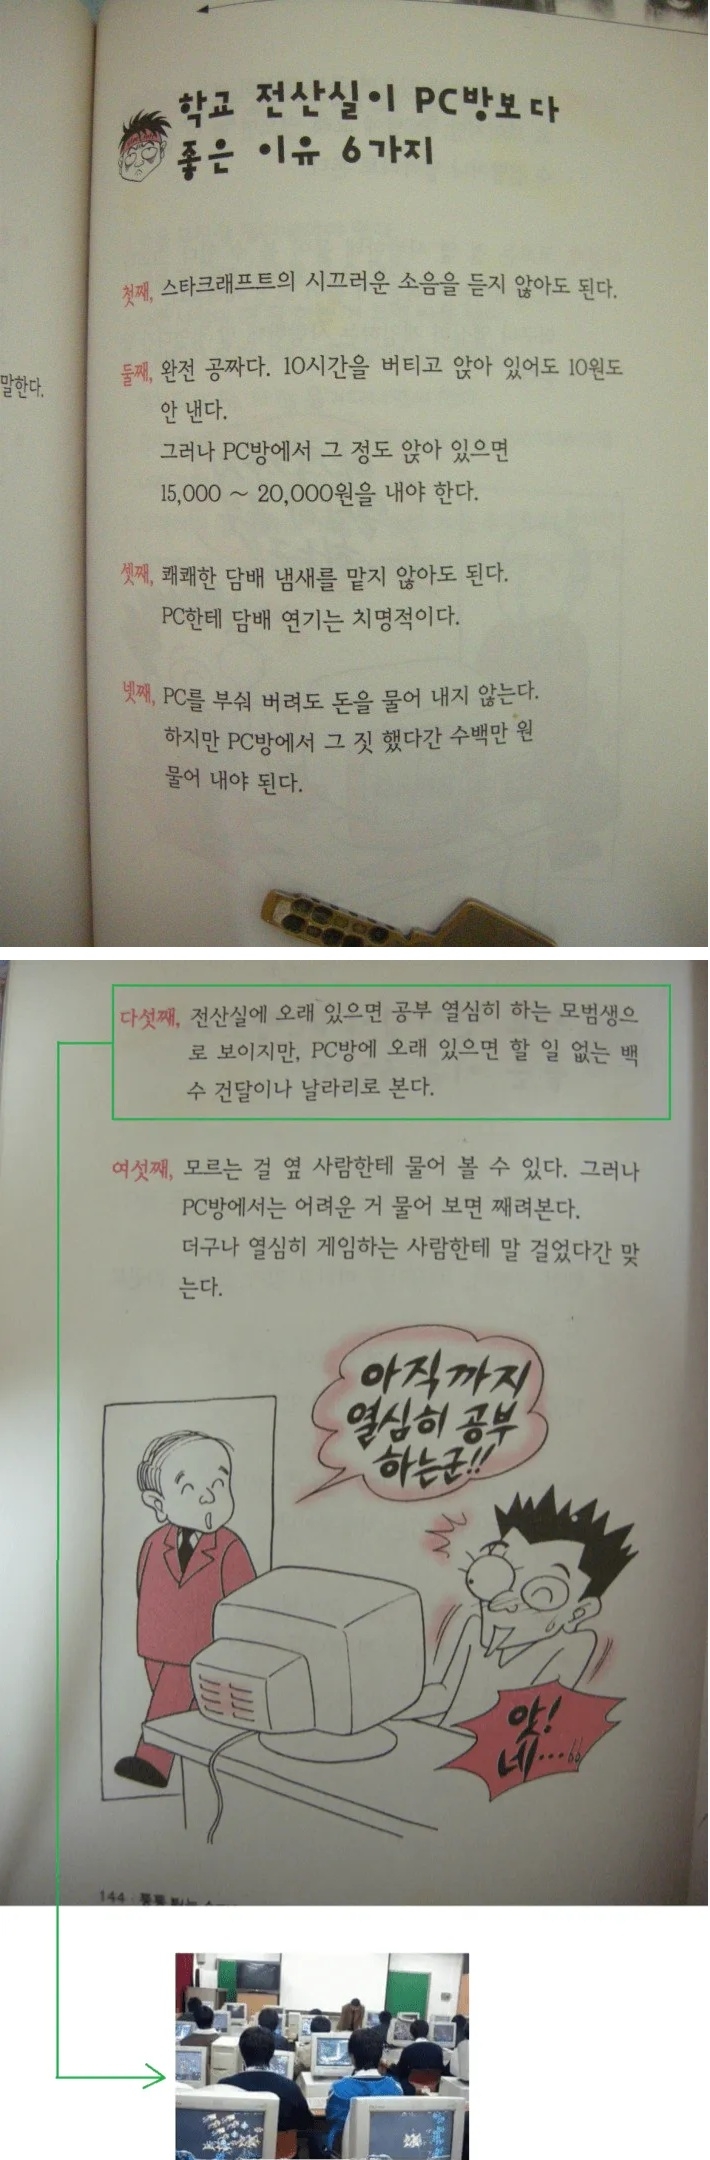 학교 전산실이 PC방보다
좋은 이유 6가지
말한다.
첫째, 스타크래프트의 시끄러운 소음을 듣지 않아도 된다.
둘째, 완전 공짜다. 10시간을 버티고 앉아 있어도 10원도
안 낸다.
그러나 PC방에서 그 정도 앉아 있으면
15,000 ~ 20,000원을 내야 한다.
셋째, 쾌쾌한 담배 냄새를 맡지 않아도 된다.
PC한테 담배 연기는 치명적이다.
넷째, PC를 부숴 버려도 돈을 물어 내지 않는다.
하지만 PC방에서 그 짓 했다간 수백만 원
물어 내야 된다.
다섯째, 전산실에 오래 있으면 공부 열심히 하는 모범생으
로 보이지만, PC방에 오래 있으면 할 일 없는 백
수 건달이나 날라리로 본다.
여섯째, 모르는 걸 옆 사람한테 물어 볼 수 있다. 그러나
PC방에서는 어려운 거 물어 보면 째려본다.
더구나 열심히 게임하는 사람한테 말 걸었다간 맞
는다.
아직까지
열심히 공부
하는군!!
앗!
네...
144